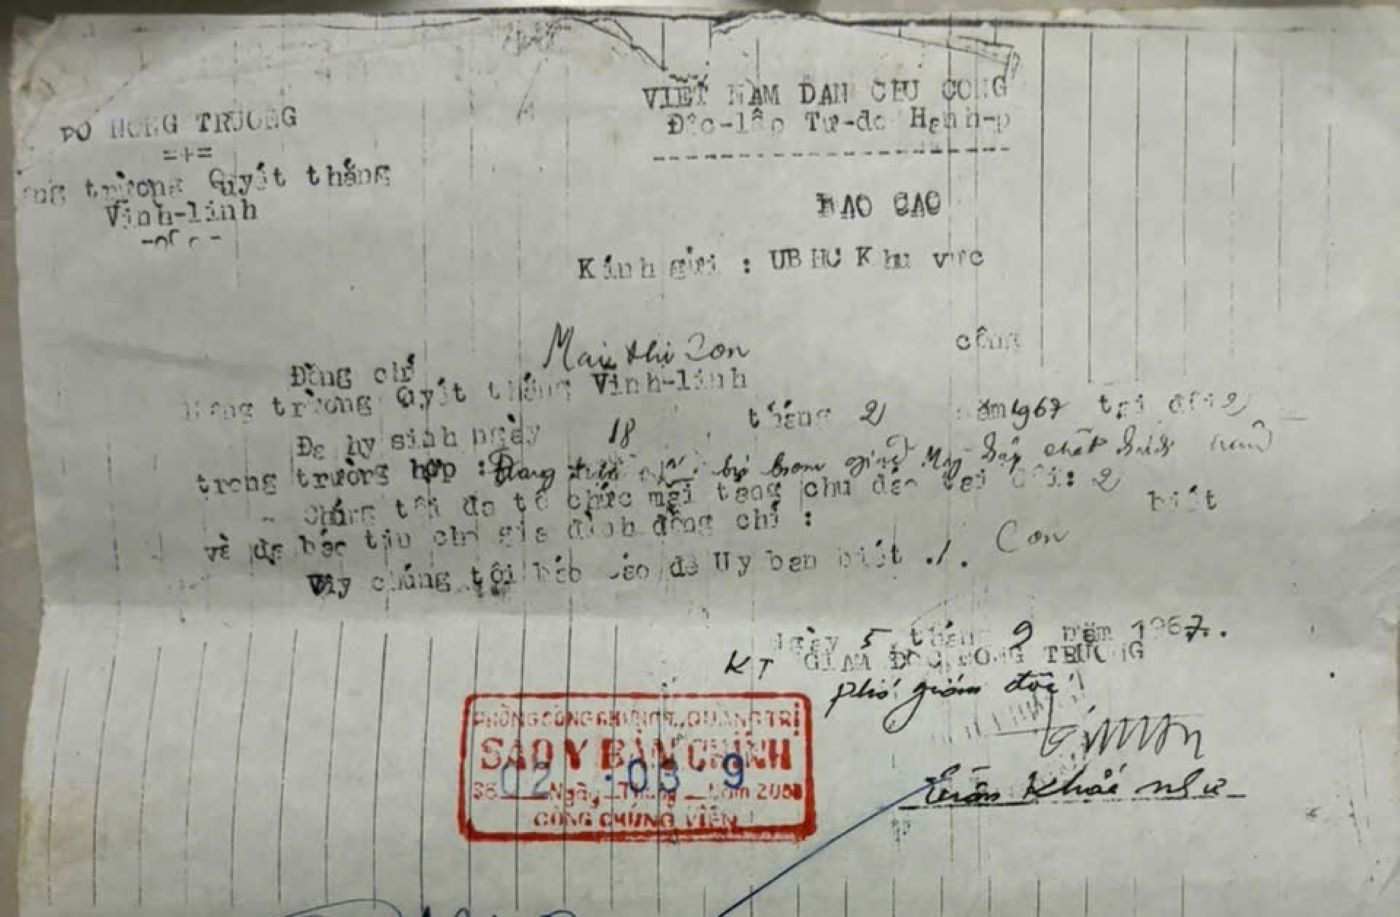 BO NONG TRUONG
=+=
trường Quyết thắng
Vinh-linh
VIET NAM DAN CHU CONG
Độc-lập Tự-do Hạnh-p
BAO CAO
Kính gửi : UBHC Khu vực
Đồng chí Mai thi Con công
trường Quyết thắng Vinh-linh
Đa hy sinh ngày 18 tháng 2 năm 1967 tại đội 2
trong trường hợp : Đang bị bom
Chúng tôi đa tổ chức mai tang chu đáo tại đội: 2
và đa báo tin cho gia đình đồng chí : Con biết
Vậy chúng tôi báo cáo để Uy ban biết ./.
ngày 5 tháng 9 năm 1967.
KT GIAM ĐOC NONG TRUONG
phó giám đốc
Trần Khải Như
PHÒNG CÔNG CHỨNG QUẢNG TRỊ
SAO Y BẢN CHÍNH
02 -03- 9
Số Ngày Tháng Năm 200
CÔNG CHỨNG VIÊN